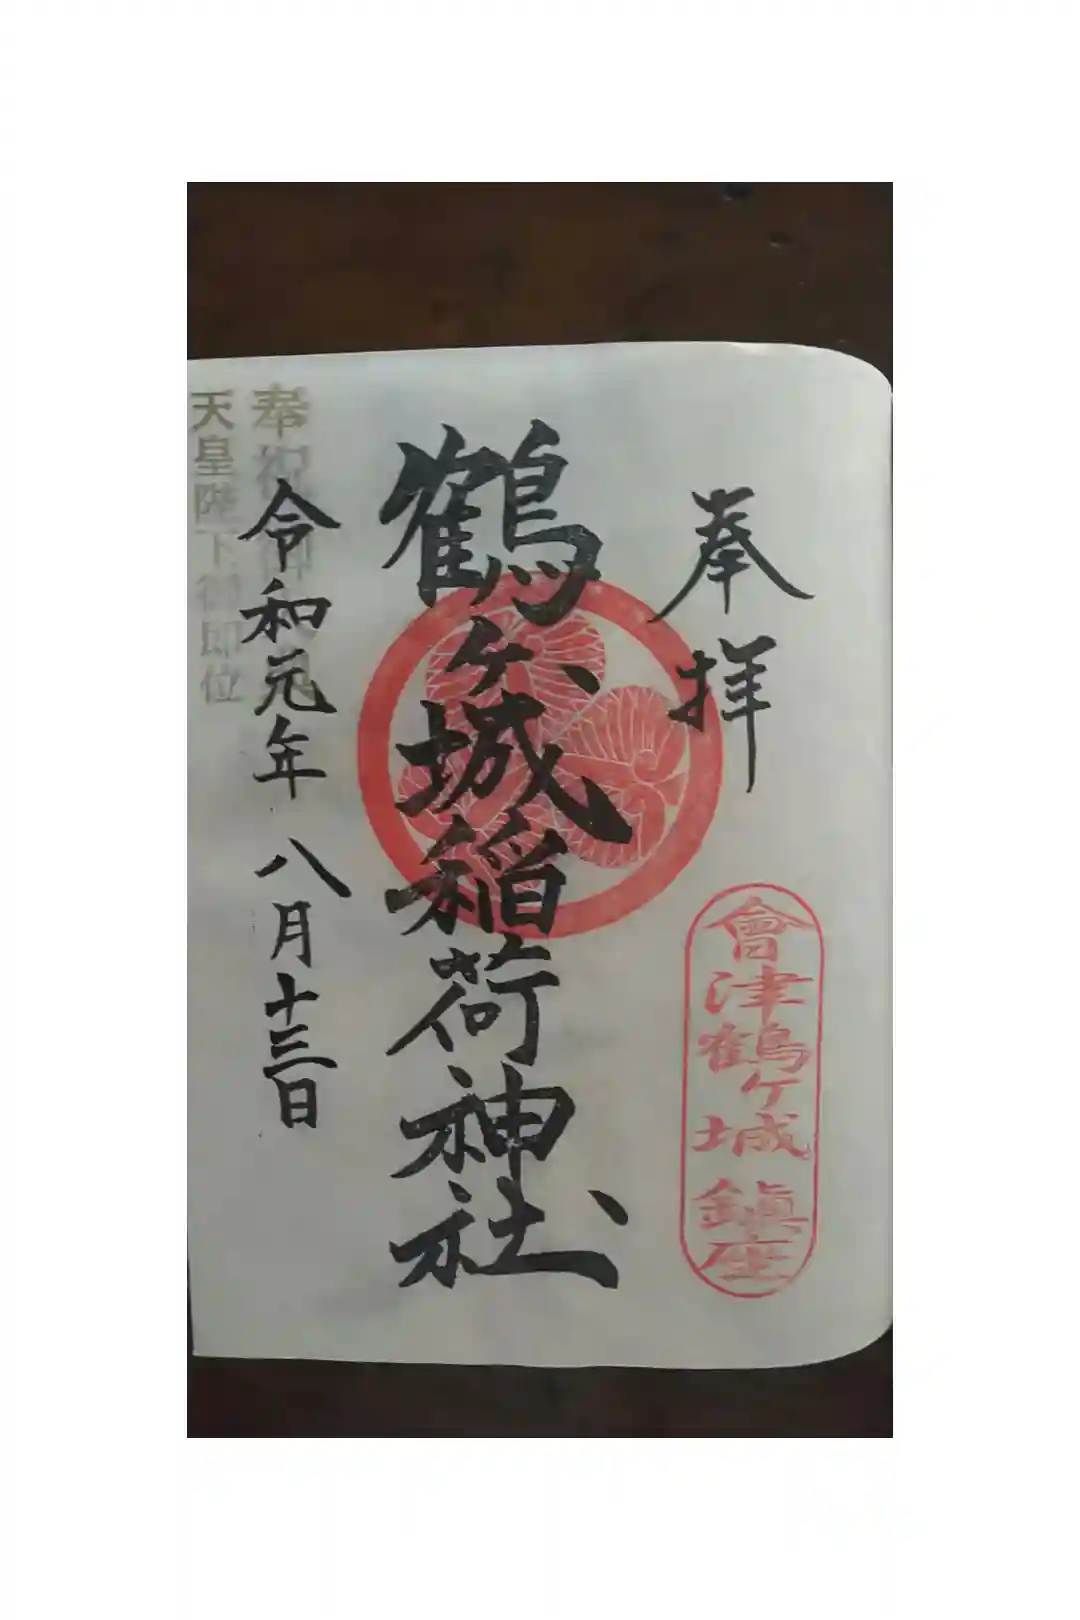 奉拝
會津鶴ケ城鎮座
鶴ヶ城稲荷神社
令和元年 八月十三日
奉祝
天皇陛下御即位